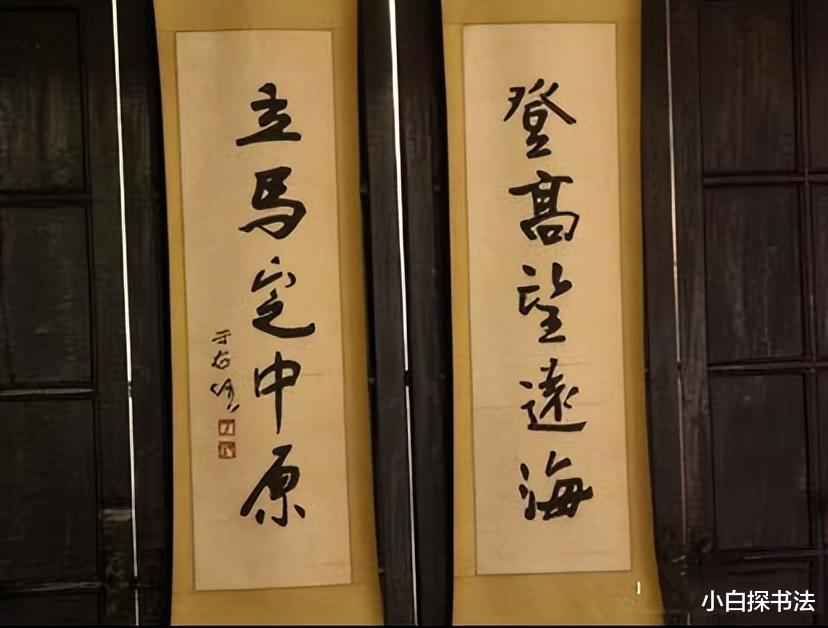 登高望遠海
立馬定中原
于右任
小白探书法